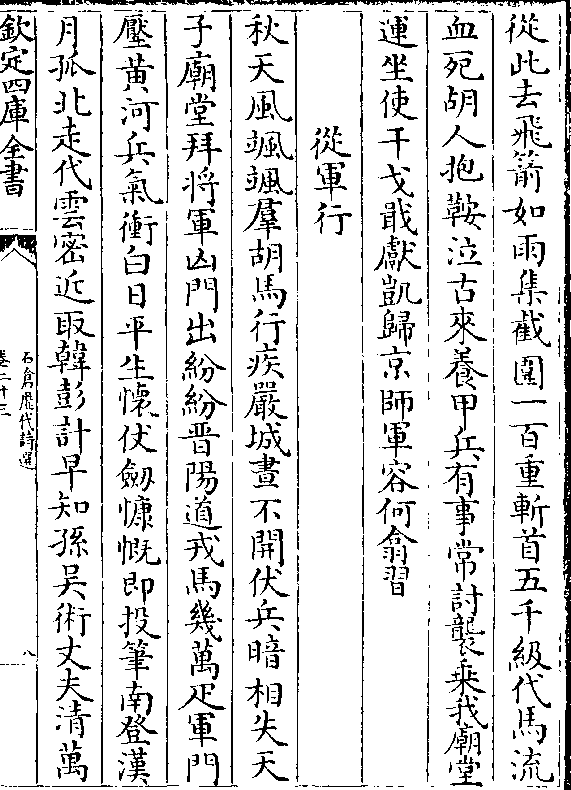 從此去飛箭如雨集截圍一百重斬首五千級代馬流
血死胡人抱鞍泣古來養甲兵有事常討襲乘我廟堂
運坐使干戈戢獻凱歸京師軍容何翕習
從軍行
秋天風颯颯羣胡馬行疾嚴城晝不開伏兵暗相失天
子廟堂拜將軍凶門出紛紛晉陽道戎馬幾萬疋軍門
壓黃河兵氣衝白日平生懷仗劒慷慨即投筆南登漢
月孤北走代雲密近取韓彭計早知孫吳術丈夫清萬
欽定四庫全書
石倉歷代詩選
卷三十三
八